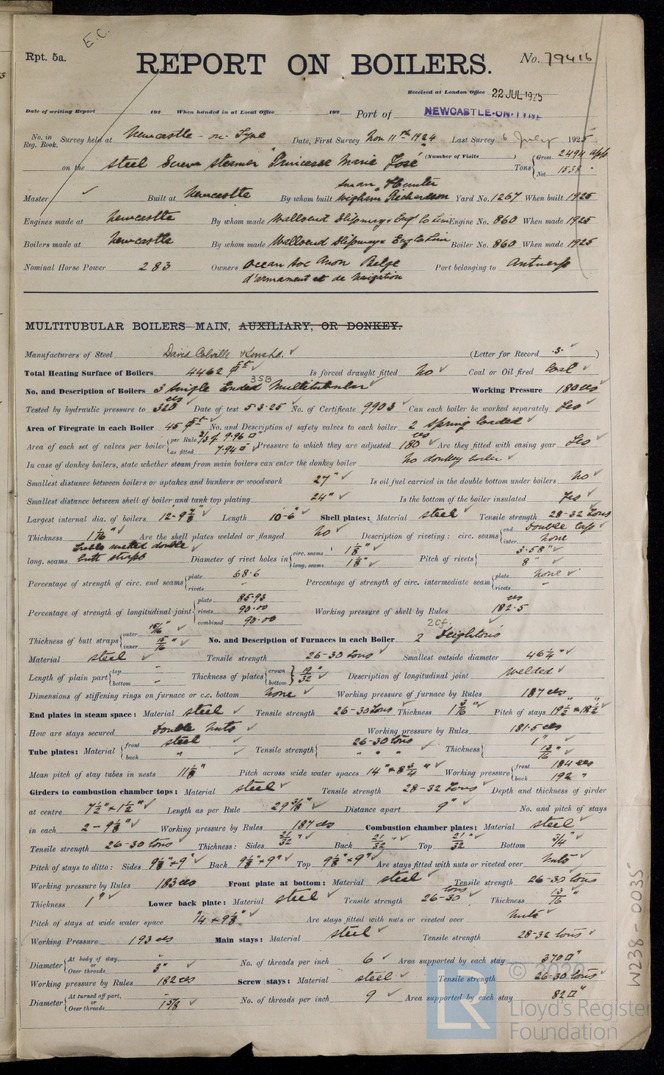 E.C.
Rpt. 5a.
REPORT ON BOILERS.
No. 79416
Received at London Office 22 JUL 1925
Date of writing Report 192 When handed in at Local Office 192 Port of NEWCASTLE-ON-TYNE
No. in Reg. Book. Survey held at Newcastle-on-Tyne Date, First Survey Nov 11th 1924 Last Survey 6 July 1925
on the Steel Screw Steamer "Princesse Marie José" (Number of Visits ) Tons Gross 2494 Net 1538
Master Built at Newcastle By whom built Swan Hunter Wigham Richardson Yard No. 1267 When built 1925
Engines made at Newcastle By whom made Wallsend Slipway & Eng Co Lim Engine No. 860 When made 1925
Boilers made at Newcastle By whom made Wallsend Slipway & Eng Co Lim Boiler No. 860 When made 1925
Nominal Horse Power 283 Owners Ocean Soc Anon Belge d'armament et de Navigation Port belonging to Antwerp
MULTITUBULAR BOILERS MAIN, AUXILIARY, OR DONKEY.
Manufacturers of Steel David Colville & Sons Ltd. (Letter for Record S )
Total Heating Surface of Boilers 4462 Is forced draught fitted No Coal or Oil fired Coal
No. and Description of Boilers 3 Single Ended Multitubular 3SB Working Pressure 180 lbs
Tested by hydraulic pressure to 320 lbs Date of test 5-3-25 No. of Certificate 9903 Can each boiler be worked separately Yes
Area of Firegrate in each Boiler 45 No. and Description of safety valves to each boiler 2 Spring loaded
Area of each set of valves per boiler per Rule 7.96 as fitted 7.94 Pressure to which they are adjusted 185 lbs Are they fitted with easing gear Yes
In case of donkey boilers, state whether steam from main boilers can enter the donkey boiler No donkey boiler
Smallest distance between boilers or uptakes and bunkers or woodwork 27" Is oil fuel carried in the double bottom under boilers No
Smallest distance between shell of boiler and tank top plating 24" Is the bottom of the boiler insulated Yes
Largest internal dia. of boilers Length 10-6" Shell plates: Material Steel Tensile strength 28-32 tons
Thickness 1 1/16 Are the shell plates welded or flanged No Description of riveting: circ. seams end Double lap inter. None
long. seams Treble riveted double butt straps Diameter of rivet holes in circ. seams 1 1/8" long. seams 1 1/8" Pitch of rivets 3.58" 8"
Percentage of strength of circ. end seams plate 68.6 rivets Percentage of strength of circ. intermediate seam plate None rivets
Percentage of strength of longitudinal joint plate 85.93 rivets 90.00 combined 90.00 Working pressure of shell by Rules 182.5 lbs
Thickness of butt straps outer inner No. and Description of Furnaces in each Boiler 2 Deightons
Material Steel Tensile strength 26-30 tons Smallest outside diameter 46 1/4"
Length of plain part top bottom Thickness of plates crown bottom 19/32" Description of longitudinal joint Welded
Dimensions of stiffening rings on furnace or c.c. bottom None Working pressure of furnace by Rules 187 lbs
End plates in steam space: Material Steel Tensile strength 26-30 tons Thickness 1 3/16" Pitch of stays 19 1/2" x 18 1/2"
How are stays secured Double nuts Working pressure by Rules 181.5 lbs
Tube plates: Material front Steel back " Tensile strength 26-30 tons Thickness 1" 13/16
Mean pitch of stay tubes in nests 11 1/8" Pitch across wide water spaces 14" x 8 3/4" Working pressure front 184 lbs back 192 "
Girders to combustion chamber tops: Material Steel Tensile strength 28-32 tons Depth and thickness of girder
at centre 7 1/2" x 1 1/2" Length as per Rule 29 7/8" Distance apart 9" No. and pitch of stays
in each 2 - 9 1/8" Working pressure by Rules 187 lbs Combustion chamber plates: Material Steel
Tensile strength 26-30 tons Thickness: Sides 21/32" Back 21/32 Top 21/32" Bottom 3/4"
Pitch of stays to ditto: Sides 9 1/8" x 9" Back 9 1/8" x 9" Top 9 1/8" x 9" Are stays fitted with nuts or riveted over Nuts
Working pressure by Rules 183 lbs Front plate at bottom: Material Steel Tensile strength 26-30 tons
Thickness 1" Lower back plate: Material Steel Tensile strength 26-30 tons Thickness 13/16
Pitch of stays at wide water space Are stays fitted with nuts or riveted over Nuts
Working Pressure 193 lbs Main stays: Material Steel Tensile strength 28-32 tons
Diameter At body of stay, or Over threads 3" No. of threads per inch 6 Area supported by each stay 370
Working pressure by Rules 182 lbs Screw stays: Material Steel Tensile strength 26-30 tons
Diameter At turned off part, or Over threads 1 5/8" No. of threads per inch 9 Area supported by each stay 82
W238-0035
LR
Lloyd's Register
Foundation